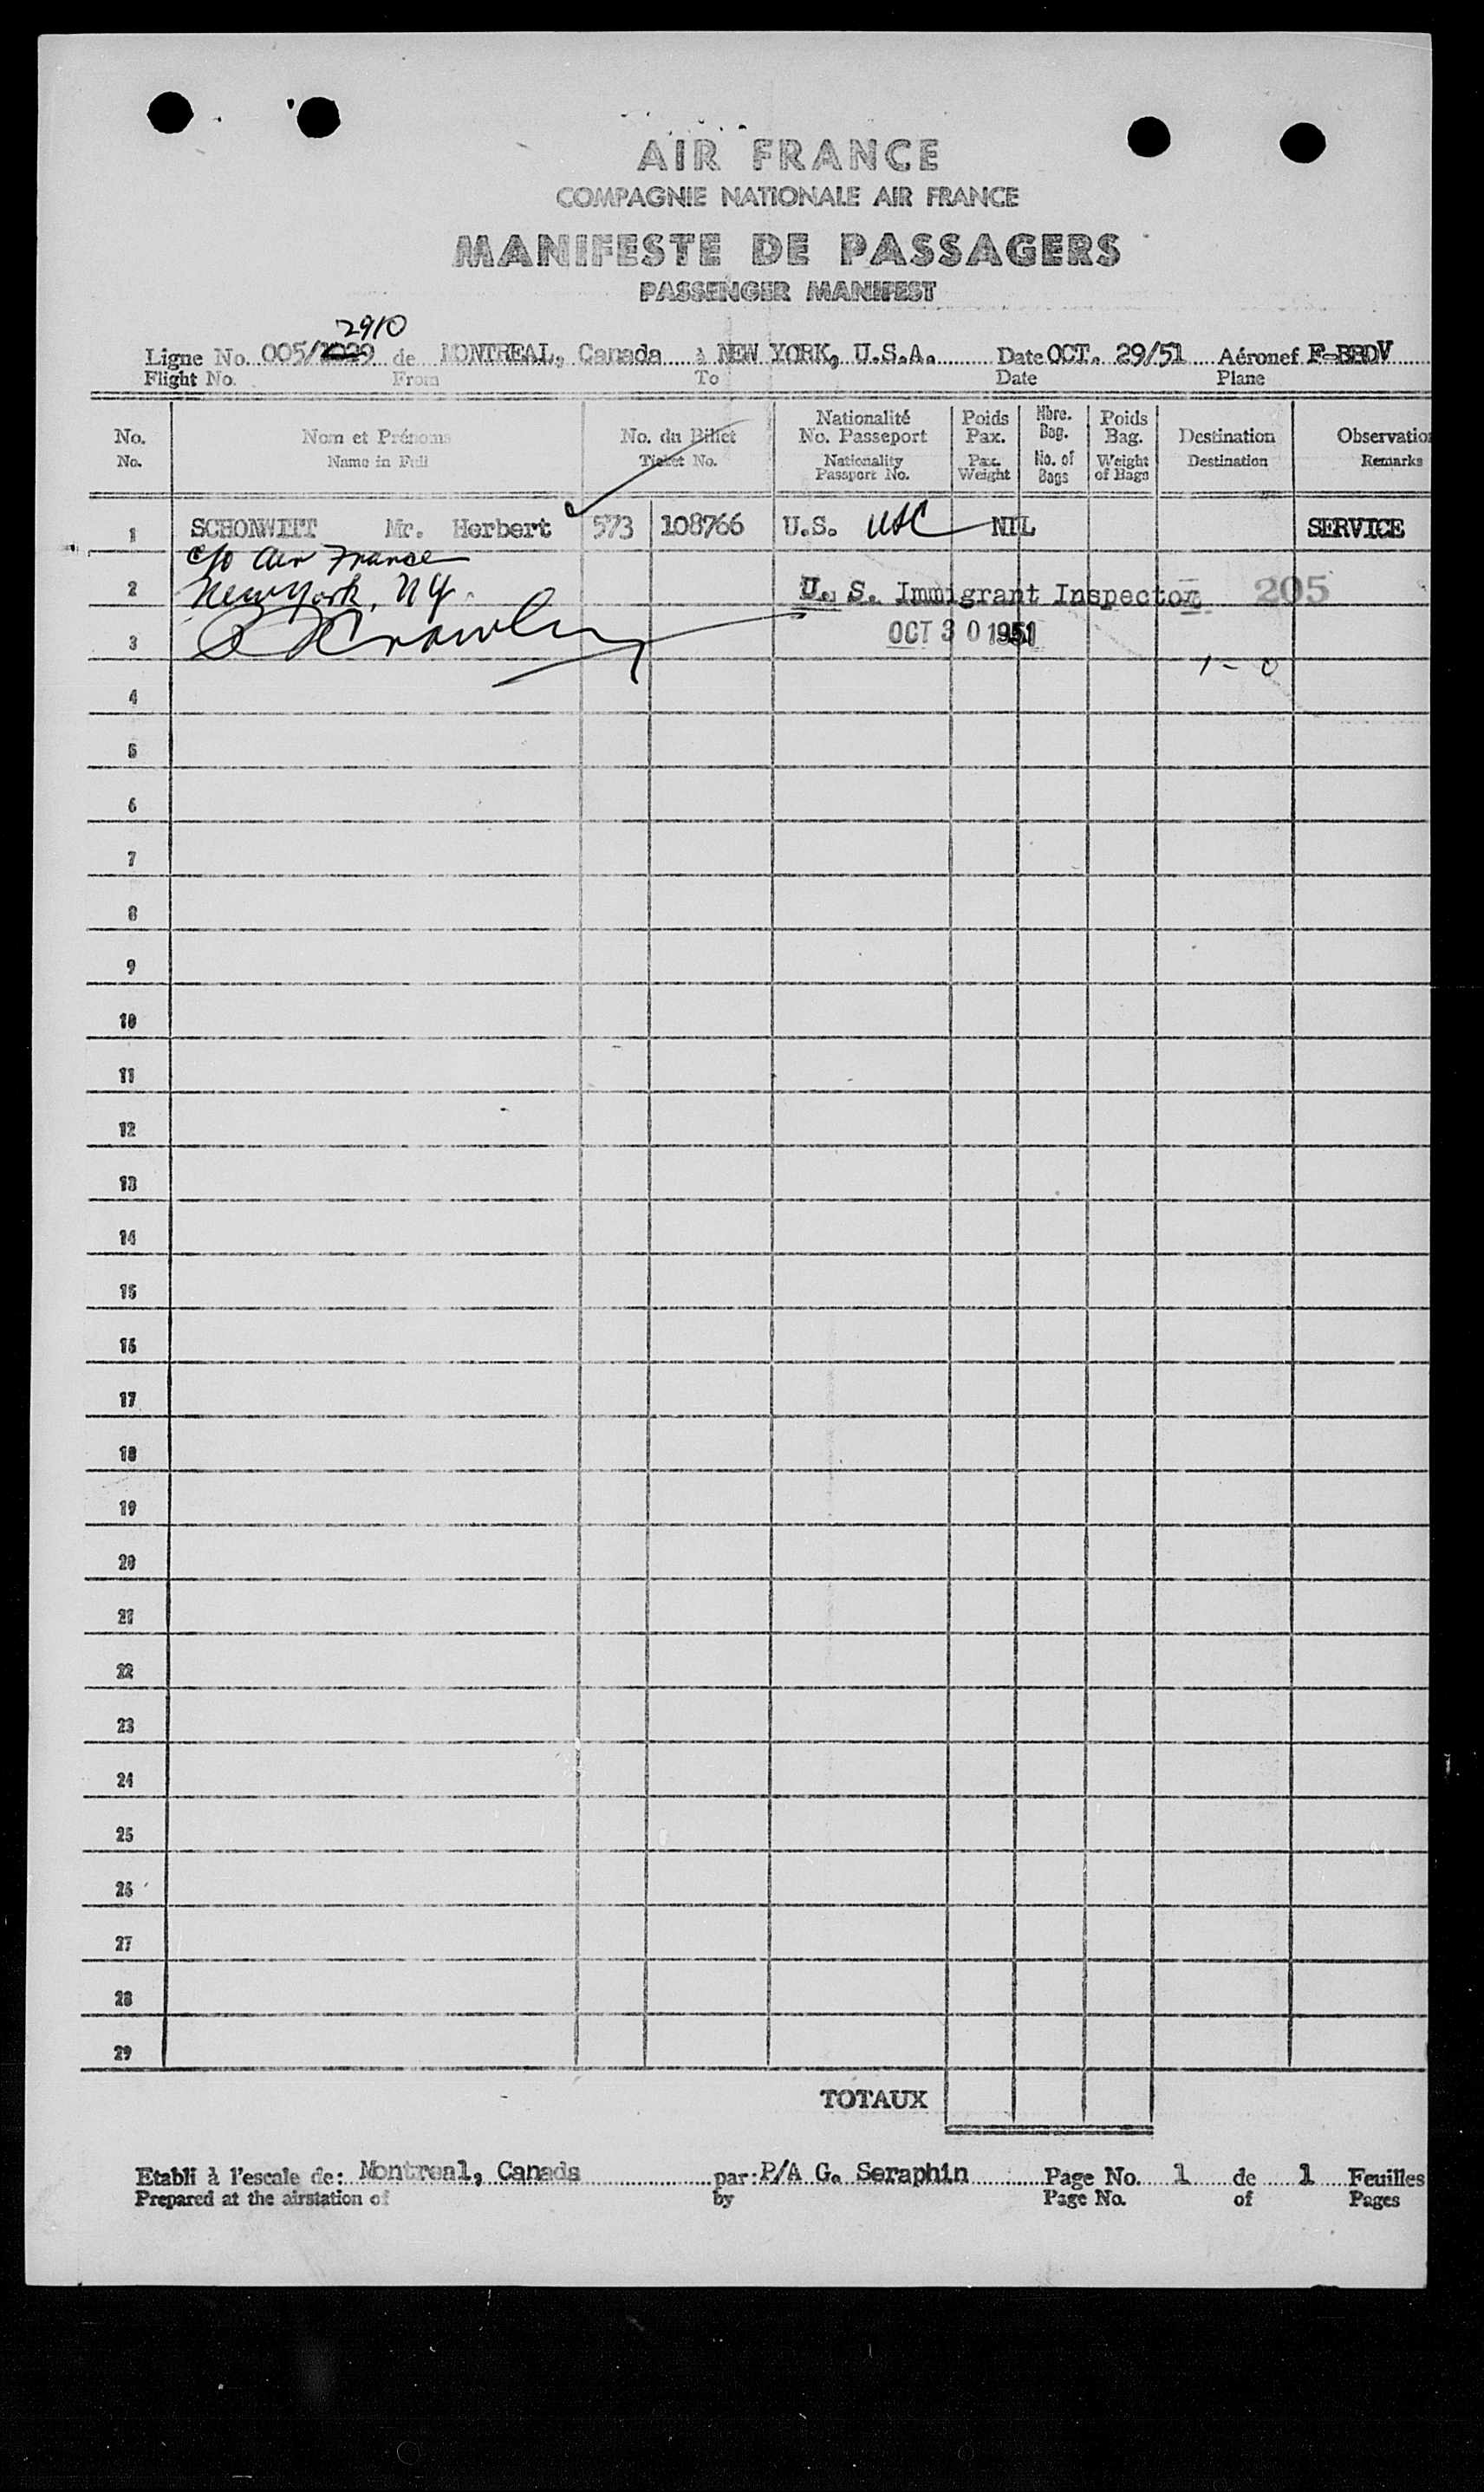 AIR FRANCE
COMPAGNIE NATIONALE AIR FRANCE
MANIFESTE DE PASSAGERS
PASSENGER MANIFEST
2910
Ligne No. 005/ de MONTREAL, Canada à NEW YORK, U.S.A. Date OCT. 29/51 Aéronef F-BBDV
Flight No. From To Date Plane
No. Nom et Prénoms No. du Billet Nationalité No. Passeport Poids Pax. Nbre. Bag. Poids Bag. Destination Observatio
No. Name in Full Ticket No. Nationality Passport No. Pax. Weight No. of Bags Weight of Bags Destination Remarks
1 SCHONWITT Mr. Herbert 573 108766 U.S. USC NIL SERVICE
c/o Air France
2 New York, NY. U. S. Immigrant Inspector 205
3 Crowley OCT 30 1951
1 - 0
4
5
6
7
8
9
10
11
12
13
14
15
16
17
18
19
20
21
22
23
24
25
26
27
28
29
TOTAUX
Etabli à l'escale de: Montreal, Canada par: P/A G. Seraphin Page No. 1 de 1 Feuilles
Prepared at the airstation of by Page No. of Pages